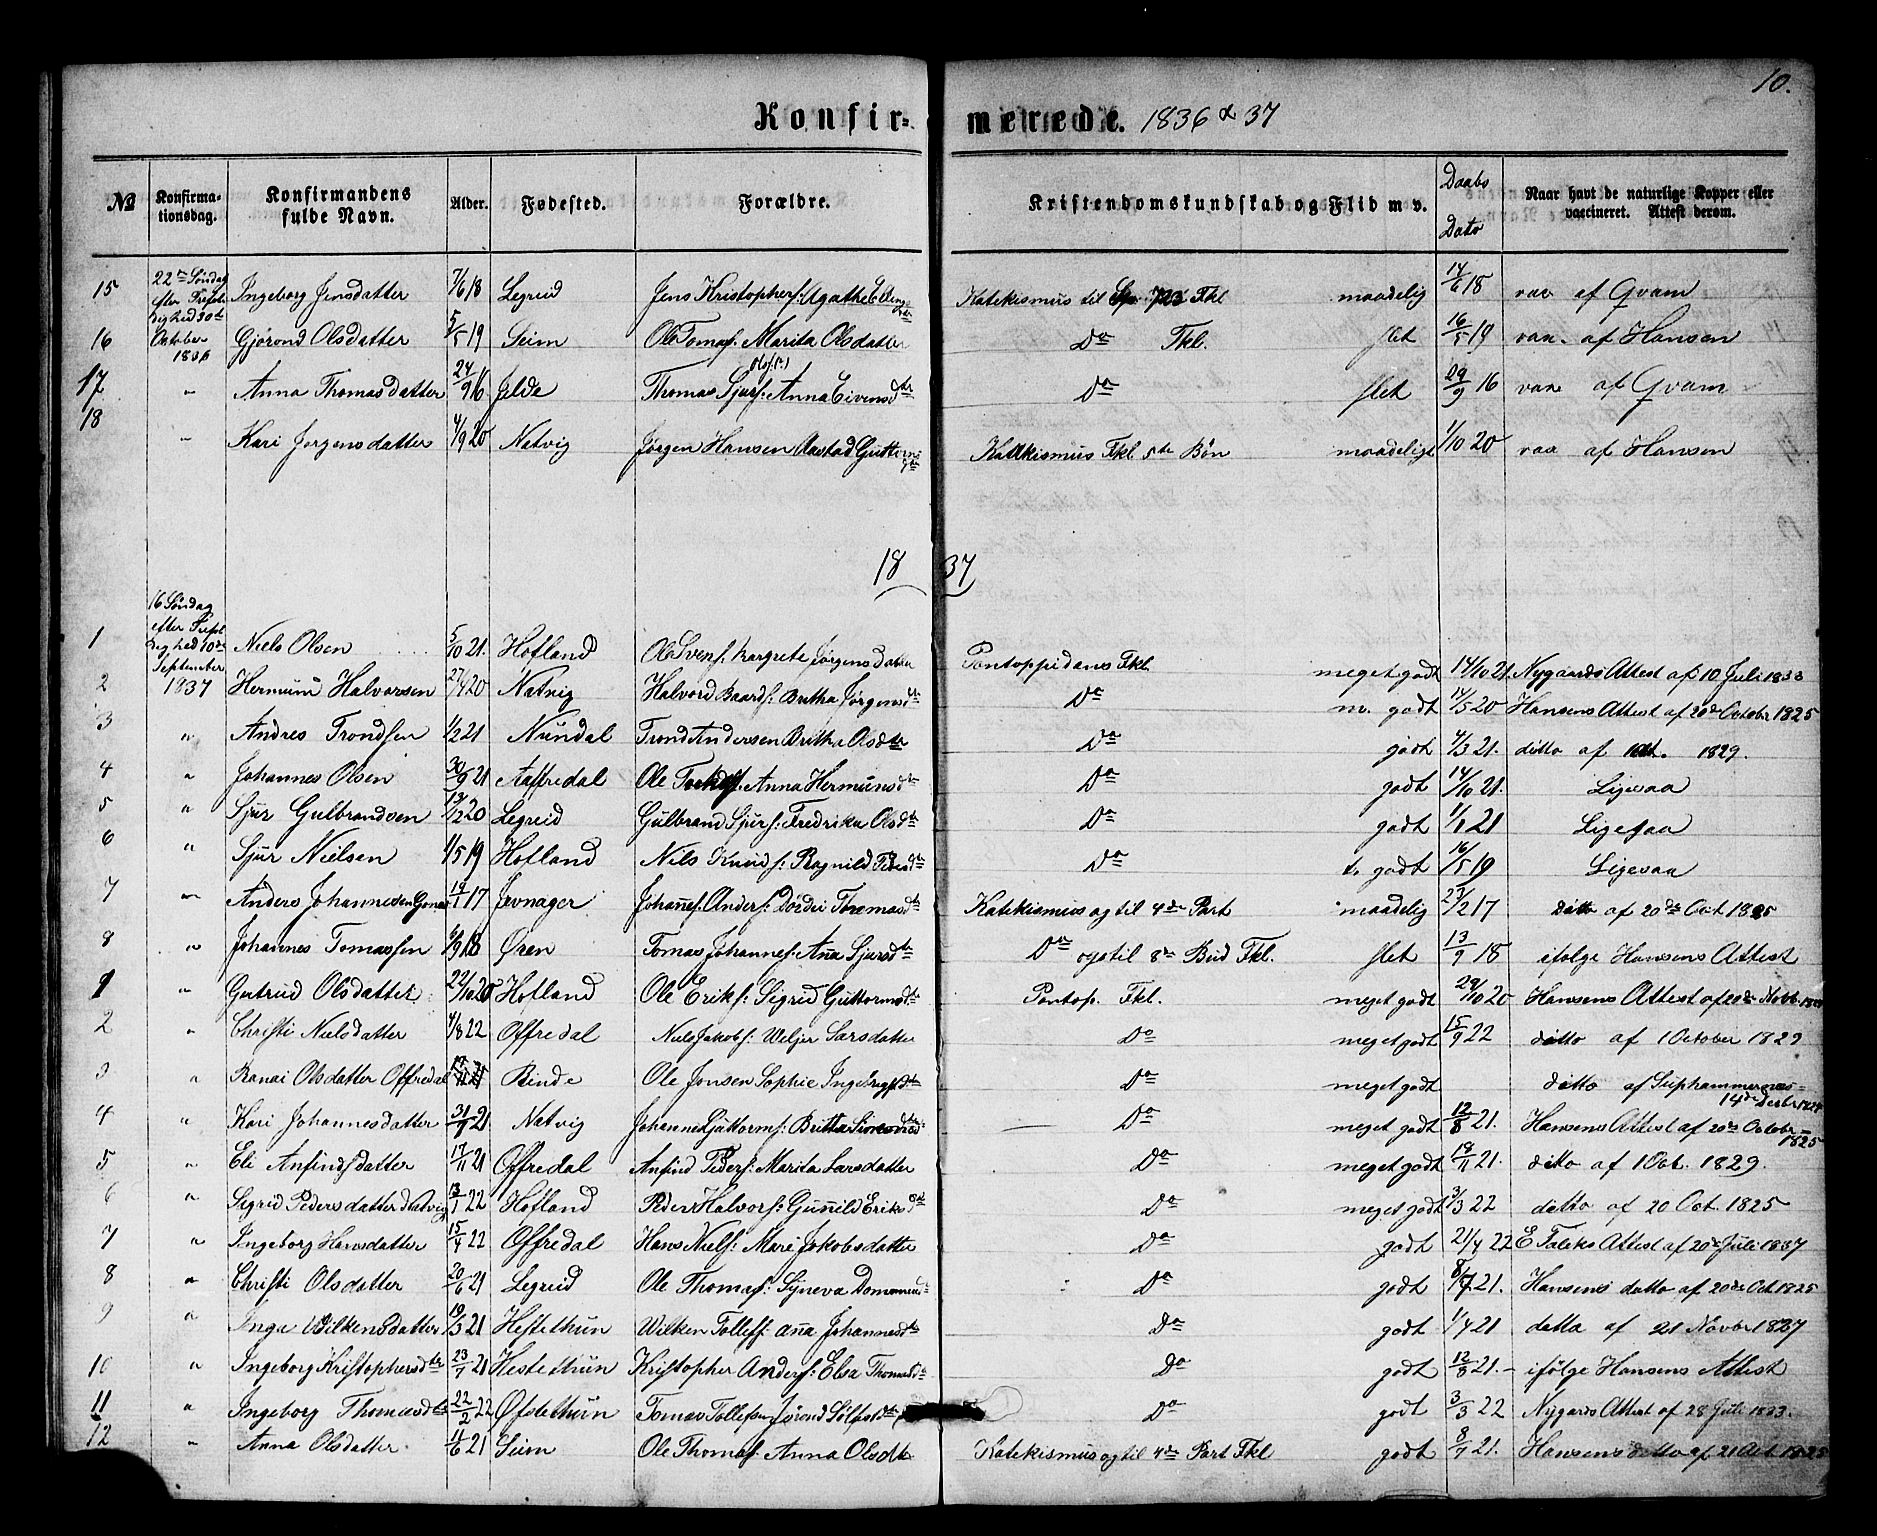 10.
Konfir= merede. 1836 & 37
№ Konfirma-tionsdag. Konfirmandens fulde Navn. Alder. Fødested. Forældre. Kristendomskundskab og Flid m v. Daabs Dato Naar havt de naturlige Kopper eller vaccineret. Attest derom.
15 22de Søndag efter Trefoldighed 30te October 1836 Ingeborg Jensdatter 7/6 18 Legreid Jens Kristophers: Agathe Katekismus til Fkl maadelig 14/6 18 vac af Qvam
16 Gjørond Olsdatter 5/5 19 Seim Ole Tomas: Marita Olsdatter Do Fkl. slet 16/5 19 vac. af Hansen
17 " Anna Thomasdatter 24/9 16 Jelde Thomas Sjurs: Anna Eivensdtr Do slet 29/9 16 vac af Qvam
18 " Kari Jørgensdatter 4/9 20 Natvig Jørgen Hansen Aastad Guttorms dtr Katekismus Fkl 5te Bøn maadeligt 1/10 20 vac af Hansen
18 37
1 16 Søndag efter Trefoldighed 10de September 1837 Niels Olsen 5/10 21. Hofland Ole Svens: Kargrete Jørgensdatter Pontoppidans Fkl. meget godt 14/10 21. Nygaards Attest af 10 Juli 1833
2 Hermund Halvorsen 27/4 20 Natvig Halvord Baards: Britha Jørgensdtr Do m. godt 14/5 20 Hansens Attest af 20de October 1825
3 " Andres Trondsen 1/2 21 Nundal Trond Andersen Britha Olsdtr Do godt 4/3 21. ditto af 1829.
4 " Johannes Olsen 30/9 21 Aaffredal Ole Anna Hermunsdtr Do godt 14/10 21. Ligesaa
5 " Sjur Gulbrandsen 19/12 20 Legreid Gulbrand Sjurs: Fredrika Olsdtr Do godt 1/1 21 Ligesaa
6 " Sjur Nielsen 1/5 19 Hofland Nils Knuds: Ragnild Pedersdtr Do t. godt 16/5 19 Ligesaa
7 " Anders Johannesen 19/1 17 Jevnager Johannes. Anders: Dordei Thomasdtr Katekismus og til 4de Part maadelig 2/2 17 Ditto af 20de Oct 1825
8 " Johannes Tomassen 6/9 18 Øren Tomas Johannes: Anna Sjursdtr Do og til 8de Bud Fkl. slet 13/9 18 ifølge Hansens Attest
1 " Gertrud Olsdatter 22/10 20 Hofland Ole Eriks: Sigrid Guttormsdtr Pontop. Fkl. meget godt 29/10 20 Hansens Attest af 20de
2 " Christi Nielsdatter 4/8 22 Offredal Niels Jakobs: Weljer Larsdatter Do meget godt 15/9 22 ditto af 1 October 1829
3 " Ranai Olsdatter Offredal Rinde Ole Jonsen Sophie Do meget godt ditto af 14de
4 " Kari Johannesdatter 31/7 21 Natvig Johannes Guttorms: Britta Do meget godt 12/8 21. Hansens Attest af 20de October 1825
5 " Eli Anfindsdatter 17/11 21 Offredal Anfind Peders: Marita Larsdatter Do meget godt 19/11 21. ditto af 1 Oct. 1829.
6 " Sigrid Pedersdatter Natvig 13/1 22 Hofland Peder Halvors: Gunnild Eriksdtr Do meget godt 3/3 22 ditto af 20 Oct. 1825
7 " Ingeborg Hansdatter 15/4 22 Offredal Hans Niels: Mari Jakobsdatter Do godt 21/4 22 E Faleks Attest af 20de Juli 1837
8 " Christi Olsdatter 20/6 21 Legreid Ole Thomas: Synneva Do godt 8/7 21. Hansens ditto af 20de Oct. 1825
9 " Inga Wilkensdatter 19/3 21 Hestethun Wilken Tollefs: Anna Johannesdtr Do godt 1/4 21 ditto af 21 Novbr 1827
10 " Ingeborg Kristophersdtr 23/7 21 Hestethun Kristopher Anders: Elsa Thomasdtr Do godt 12/8 21. - ifølge Hansens Attest
11 " Ingeborg Thomasdtr 22/2 22 Øfstethun Tomas Tollefsen Jørond Do godt 3/3 22 Nygards Attest af 28 Juli 1833.
12 " Anna Olsdatter 11/6 21 Seim Ole Thomas: Anna Olsdtr Katekismus og til 4de Part Fkl godt 8/7 21. Hansens ditto af 21 Oct 1825